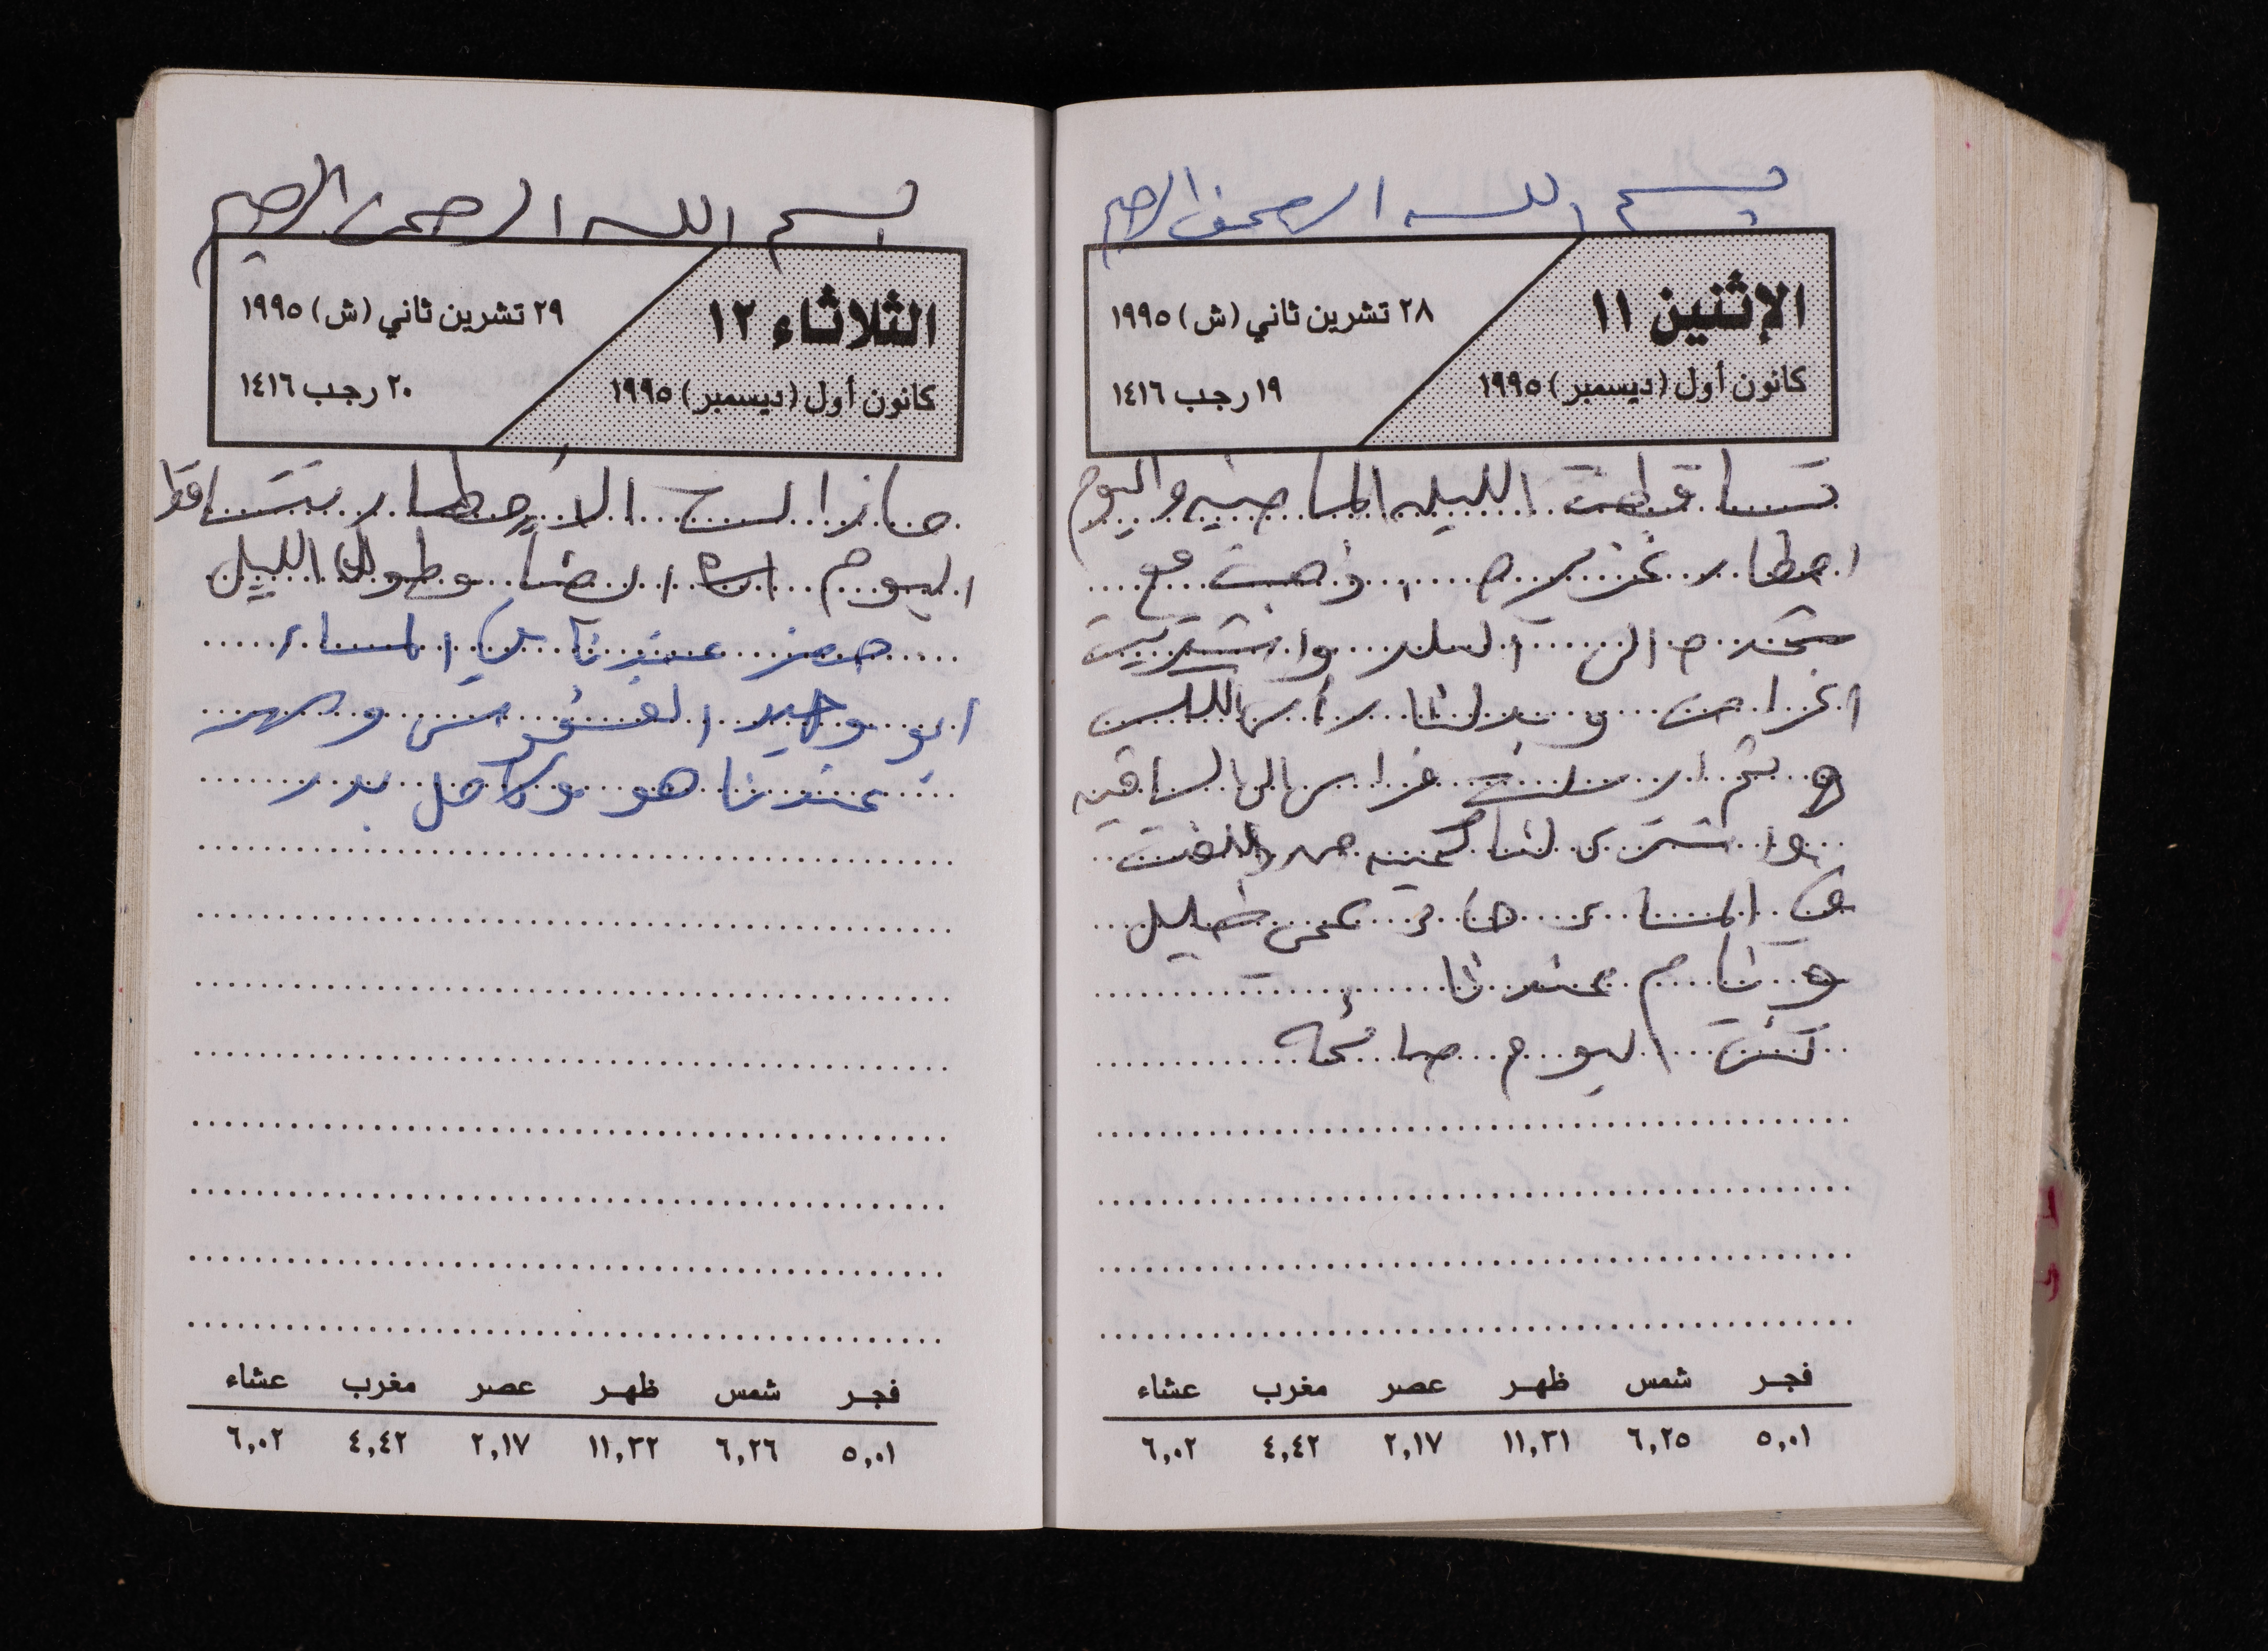 بسم الله الرحمن الرحيم
الإثنين ١١
كانون أول (ديسمبر) ١٩٩٥
٢٨ تشرين ثاني (ش) ١٩٩٥
١٩ رجب ١٤١٦
تساقطت الليله الماضيه واليوم
امطار غزيره ذهبت مع
الى البلد واشتريت
اغراض
ثم ارسلت الى الساقيه
واشترى لنا كميه من اللفت
في المساء جاء عمي خليل
ونام عندنا
كنت اليوم صائمه
فجر شمس ظهر عصر مغرب عشاء
٥,٠١ ٦,٢٥ ١١,٣١ ٢,١٧ ٤,٤٢ ٦,٠٢
بسم الله الرحمن الرحيم
الثلاثاء ١٢
كانون أول (ديسمبر) ١٩٩٥
٢٩ تشرين ثاني (ش) ١٩٩٥
٢٠ رجب ١٤١٦
مازالت الأمطار تتساقط
اليوم ايضاً وطول الليل
حضر عندنا في المساء
ابو وحيد وسهر
عندنا هو وكامل بدر
فجر شمس ظهر عصر مغرب عشاء
٥,٠١ ٦,٢٦ ١١,٣٢ ٢,١٧ ٤,٤٢ ٦,٠٢